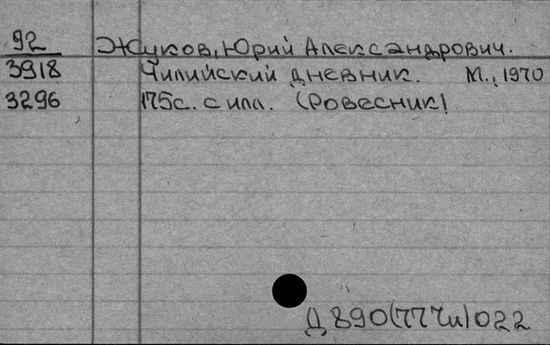 92 Жуков, Юрий Александрович.
3918 Чилийский дневник. М., 1970
3296 175с. с илл. (Ровесник)
Д 890(77Чи)022